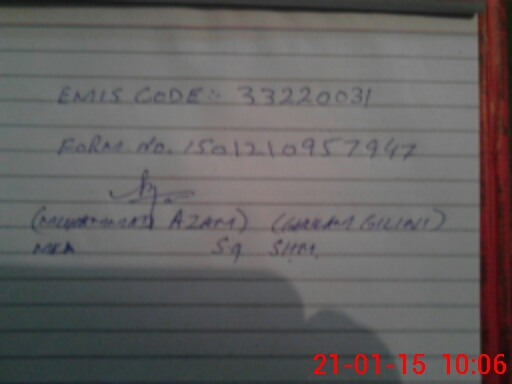 EMIS CODE:- 33220031
FORM NO. 150121095 7947
(MUHAMMAD AZAM) (GILINI)
MEA Sq SHM.
21-01-15 10:06